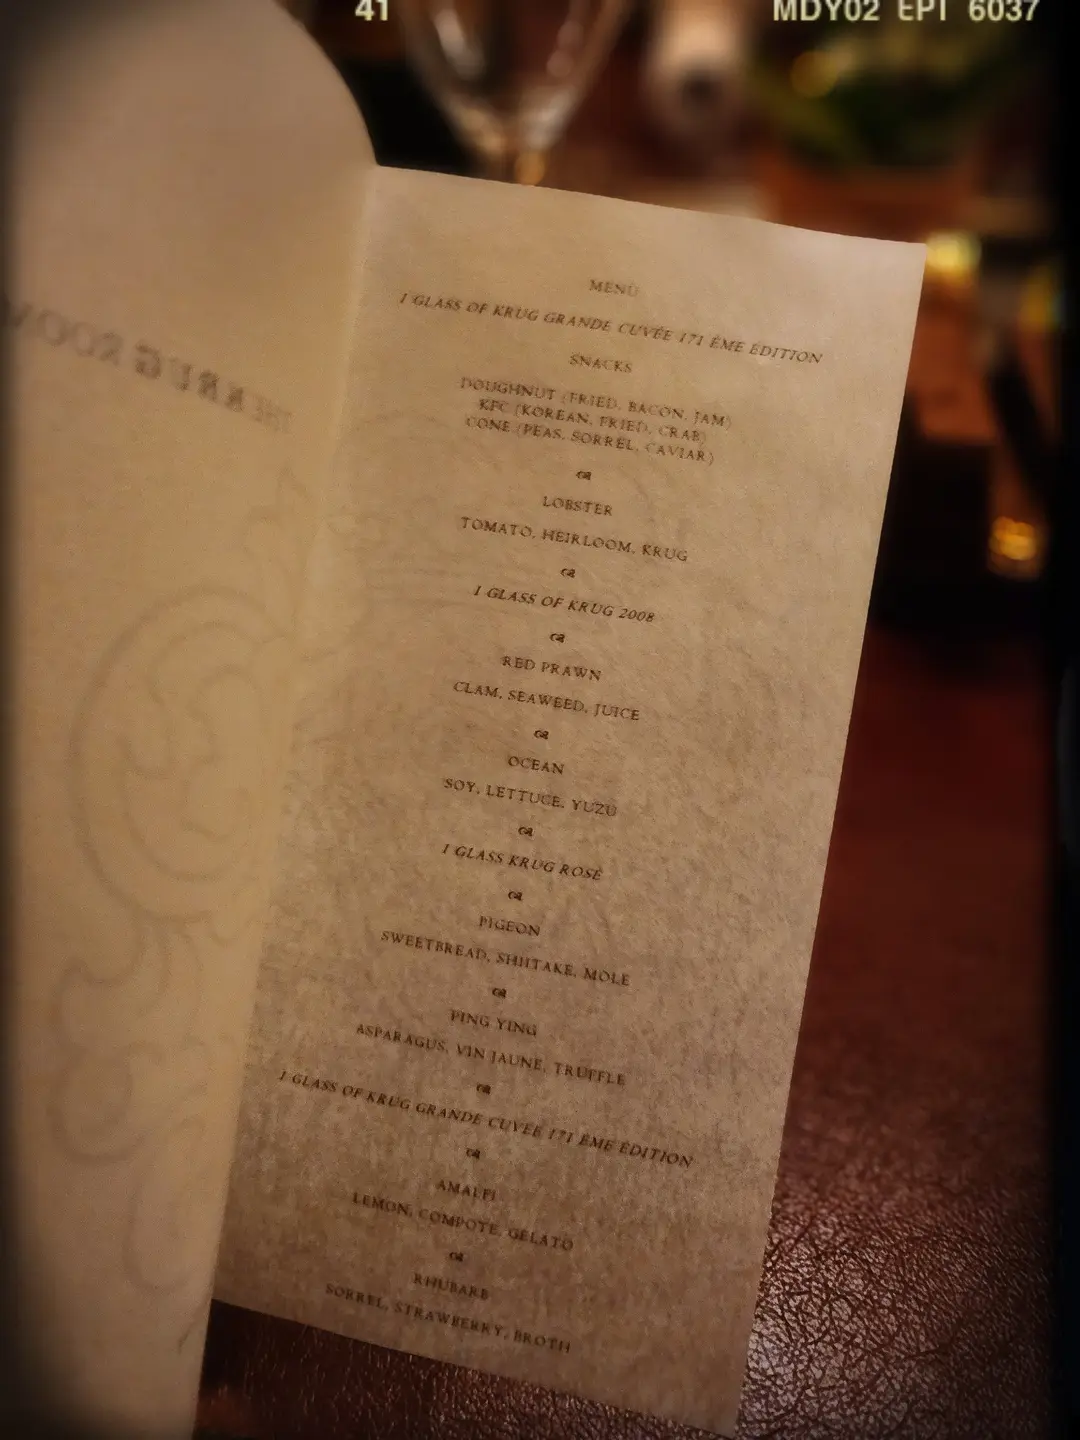 41
MDY02 EPI 6037
THE KRUG ROOM
MENU
1 GLASS OF KRUG GRANDE CUVÉE 171 ÈME ÉDITION
SNACKS
DOUGHNUT (FRIED, BACON, JAM)
KFC (KOREAN, FRIED, CRAB)
CONE (PEAS, SORREL, CAVIAR)
LOBSTER
TOMATO, HEIRLOOM, KRUG
1 GLASS OF KRUG 2008
RED PRAWN
CLAM, SEAWEED, JUICE
OCEAN
SOY, LETTUCE, YUZU
1 GLASS KRUG ROSÉ
PIGEON
SWEETBREAD, SHIITAKE, MOLE
PING YING
ASPARAGUS, VIN JAUNE, TRUFFLE
1 GLASS OF KRUG GRANDE CUVÉE 171 ÈME ÉDITION
AMALFI
LEMON, COMPOTE, GELATO
RHUBARB
SORREL, STRAWBERRY, BROTH